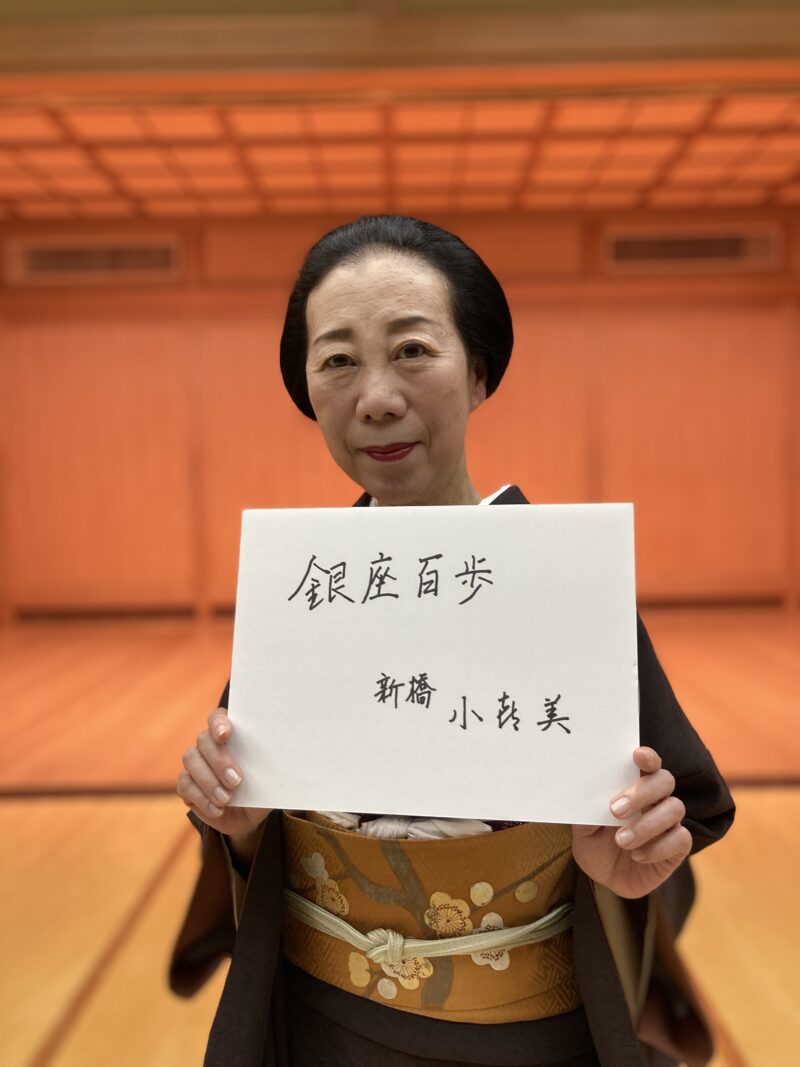 銀座百歩
新橋 小㐂美